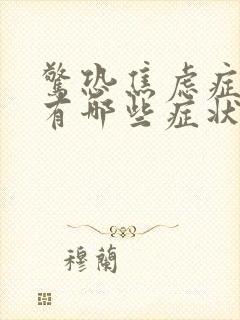 驚恐焦虑症
有哪些症状
穆蘭